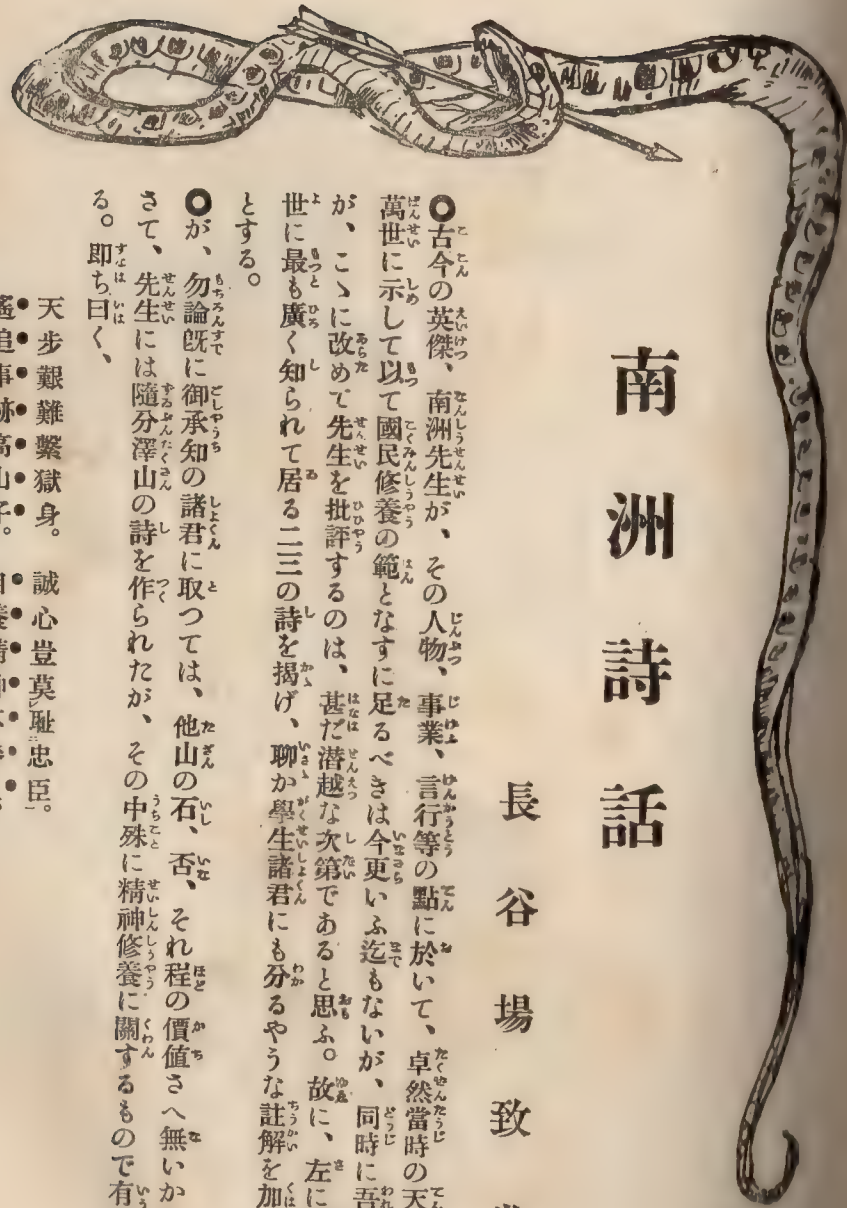 南洲詩話
長谷場致
◎古今の英傑、南洲先生が、その人物、事業、言行等の點に於いて、卓然當時の天
萬世に示して以て國民修養の範となすに足るべきは今更いふ迄もないが、同時に吾
が、こゝに改めて先生を批評するのは、甚だ潜越な次第であると思ふ。故に、左に
世に最も廣く知られて居る二三の詩を揭げ、聊か學生諸君にも分るやうな註解を加
とする。
◎が、勿論既に御承知の諸君に取つては、他山の石、否、それ程の價値さへ無いか
さて、先生には隨分澤山の詩を作られたが、その中殊に精神修養に關するもので有
る。卽ち曰く、
天步艱難繫獄身。誠心豈莫恥忠臣。
遙追事跡高山子。自養精神